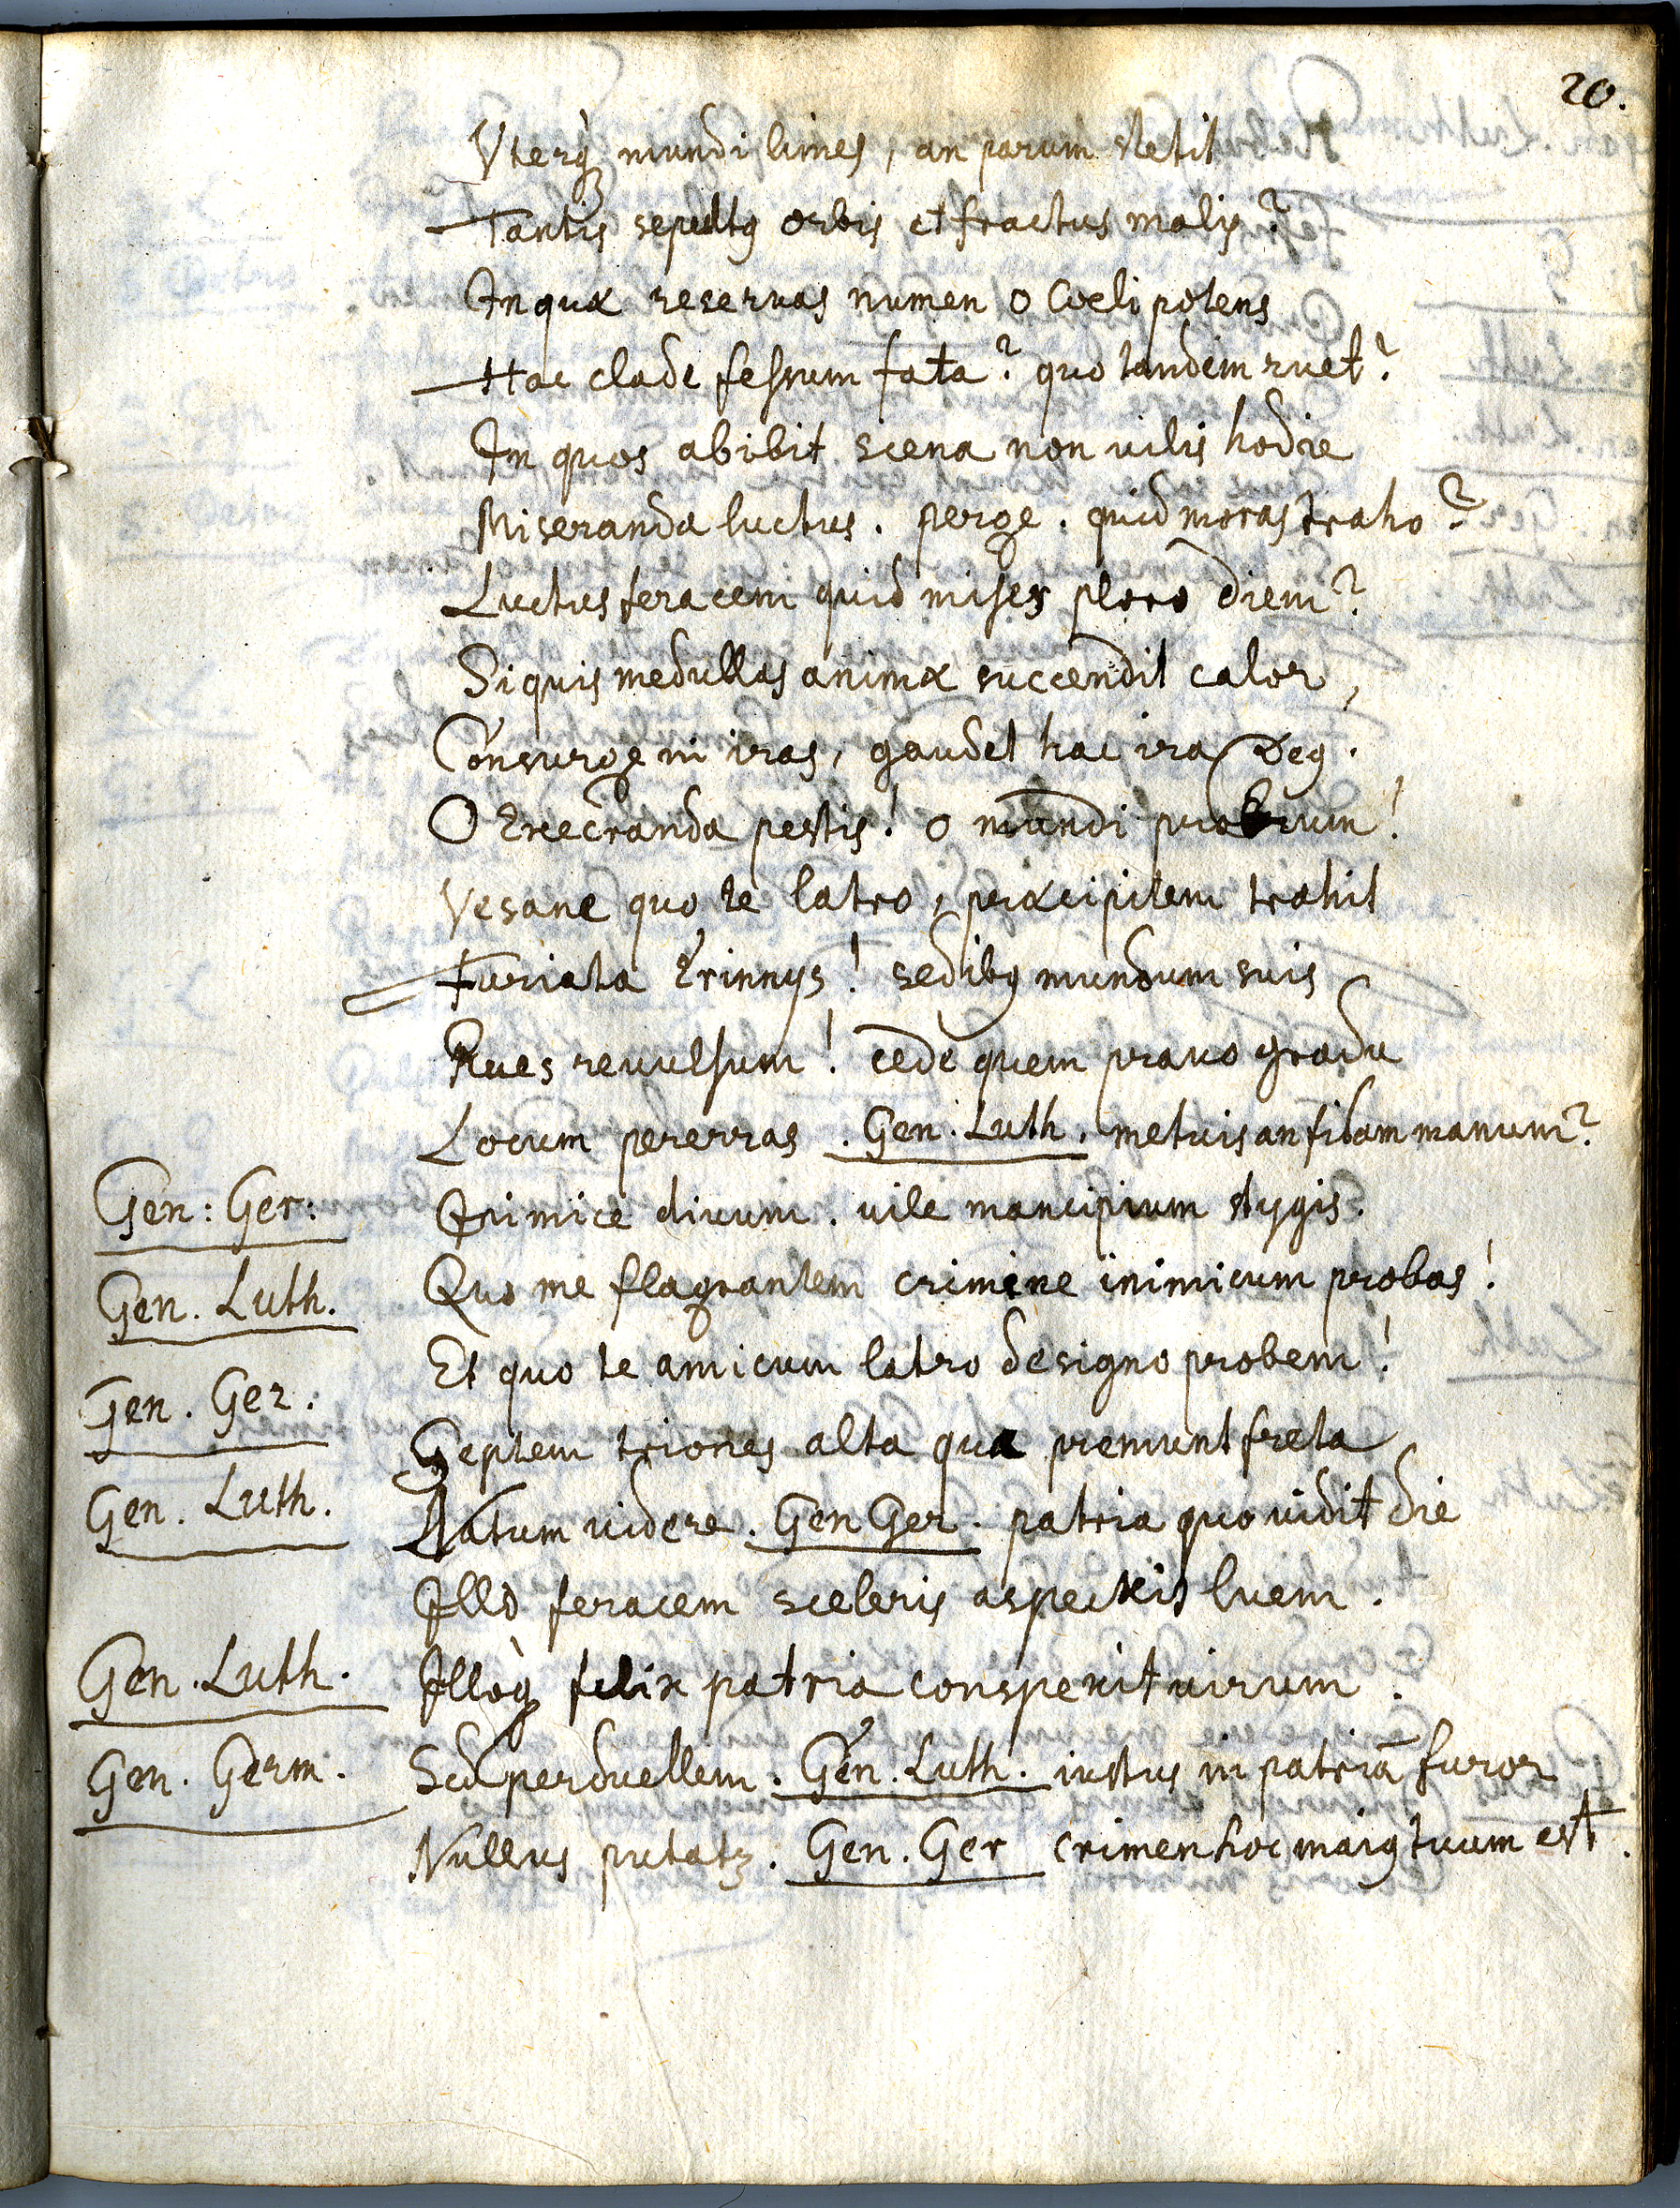 20.
Vterq̀ꝫ mundi limes, an parum stetit
Tantis sepultꝯ orbis et fractus malis?
In quæ reseruas numen o Coeli potens
Hac clade fessum fata? quo tandem ruet?
In quos abibit scena non uilis hodie
Miseranda luctus. perge. quid moras traho?
Luctus feracem quid miser ploro diem?
Si quis medullas animæ succendit calor,
Consurge in iras, gaudet hac ira Deꝯ.
O Execranda pestis! o mundi probrum!
Vesane quo te latro, præcipitem trahit
Furiata Erinnys! sedibꝯ mundum suis
Rues reuulsum! cede quem prauo gradu
Locum pererras. Gen. Luth. metuis an fidam manum?
Gen: Ger: Inimice diuum. uile mancipium stygis.
Gen. Luth. Quo me flagrantem crimine inimicum probas!
Gen. Ger: Et quo te amicum latro de signo probem!
Gen. Luth. Septem triones alta quæ premunt freta
Natum uidere. Gen Ger. patria quo uidit die
Illo feracem sceleris aspexit luem.
Gen. Luth. Illoq̀ felix patria conspexit uirum.
Gen. Germ. Sed perduellem. Gen. Luth. iustus in patriā furor
Nullus putatꝫ. Gen. Ger crimen hoc maiꝯ tuum est.